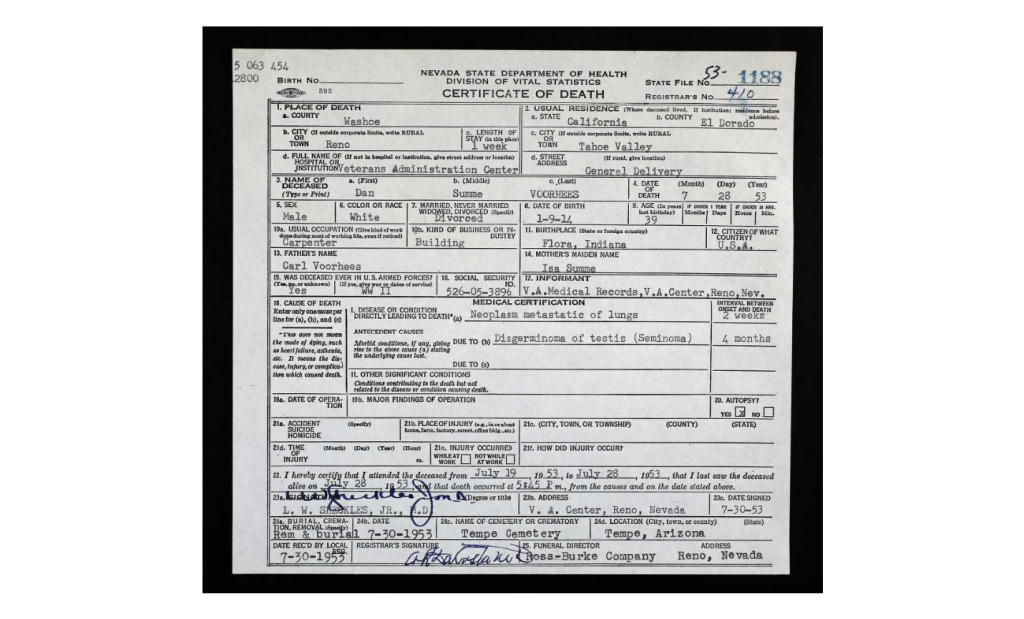 5 063 454
2800
BIRTH No.
393
NEVADA STATE DEPARTMENT OF HEALTH
DIVISION OF VITAL STATISTICS
CERTIFICATE OF DEATH
STATE FILE No. 53- 1188
REGISTRAR'S No. 410
1. PLACE OF DEATH
a. COUNTY
Washoe
2. USUAL RESIDENCE (Where deceased lived. If institution: residence before admission).
a. STATE California b. COUNTY El Dorado
b. CITY (If outside corporate limits, write RURAL
OR
TOWN Reno
c. LENGTH OF
STAY (in this place)
1 week
c. CITY (If outside corporate limits, write RURAL
OR
TOWN Tahoe Valley
d. FULL NAME OF (If not in hospital or institution, give street address or location)
HOSPITAL OR
INSTITUTION Veterans Administration Center
d. STREET (If rural, give location)
ADDRESS
General Delivery
3. NAME OF
DECEASED
(Type or Print)
a. (First) b. (Middle) c. (Last)
Dan Summe VOORHEES
4. DATE
OF
DEATH
(Month) (Day) (Year)
7 28 53
5. SEX
Male
6. COLOR OR RACE
White
7. MARRIED, NEVER MARRIED,
WIDOWED, DIVORCED (Specify)
Divorced
8. DATE OF BIRTH
1-9-14
9. AGE (In years
last birthday)
39
IF UNDER 1 YEAR
Months Days
IF UNDER 24 HRS.
Hours Min.
10a. USUAL OCCUPATION (Give kind of work
done during most of working life, even if retired)
Carpenter
10b. KIND OF BUSINESS OR IN-
DUSTRY
Building
11. BIRTHPLACE (State or foreign country)
Flora, Indiana
12. CITIZEN OF WHAT
COUNTRY?
U.S.A.
13. FATHER'S NAME
Carl Voorhees
14. MOTHER'S MAIDEN NAME
Isa Summe
15. WAS DECEASED EVER IN U.S. ARMED FORCES?
(Yes, no, or unknown) (If yes, give war or dates of service)
Yes WW II
16. SOCIAL SECURITY
NO.
526-05-3896
17. INFORMANT
V.A.Medical Records,V.A.Center,Reno,Nev.
18. CAUSE OF DEATH
Enter only one cause per
line for (a), (b), and (c)
*This does not mean
the mode of dying, such
as heart failure, asthenia,
etc. It means the dis-
ease, injury, or complica-
tion which caused death.
MEDICAL CERTIFICATION
I. DISEASE OR CONDITION
DIRECTLY LEADING TO DEATH* (a) Neoplasm metastatic of lungs
INTERVAL BETWEEN
ONSET AND DEATH
2 weeks
ANTECEDENT CAUSES
Morbid conditions, if any, giving
rise to the above cause (a) stating
the underlying cause last.
DUE TO (b) Disgerminoma of testis (Seminoma)
4 months
DUE TO (c)
II. OTHER SIGNIFICANT CONDITIONS
Conditions contributing to the death but not
related to the disease or condition causing death.
19a. DATE OF OPERA-
TION
19b. MAJOR FINDINGS OF OPERATION
20. AUTOPSY?
YES X NO
21a. ACCIDENT (Specify)
SUICIDE
HOMICIDE
21b. PLACE OF INJURY (e.g., in or about
home, farm, factory, street, office bldg., etc.)
21c. (CITY, TOWN, OR TOWNSHIP) (COUNTY) (STATE)
21d. TIME (Month) (Day) (Year) (Hour)
OF
INJURY m.
21e. INJURY OCCURRED
WHILE AT WORK NOT WHILE AT WORK
21f. HOW DID INJURY OCCUR?
22. I hereby certify that I attended the deceased from July 19 1953, to July 28, 1953, that I last saw the deceased
alive on July 28, 1953, and that death occurred at 5:45 P m., from the causes and on the date stated above.
23a. SIGNATURE (Degree or title)
L. W. SHECKLES, JR., M.D.
23b. ADDRESS
V. A. Center, Reno, Nevada
23c. DATE SIGNED
7-30-53
24a. BURIAL, CREMA-
TION, REMOVAL (Specify)
Rem & burial
24b. DATE
7-30-1953
24c. NAME OF CEMETERY OR CREMATORY
Tempe Cemetery
24d. LOCATION (City, town, or county) (State)
Tempe, Arizona
DATE REC'D BY LOCAL
REG.
7-30-1953
REGISTRAR'S SIGNATURE
25. FUNERAL DIRECTOR ADDRESS
Ross-Burke Company Reno, Nevada